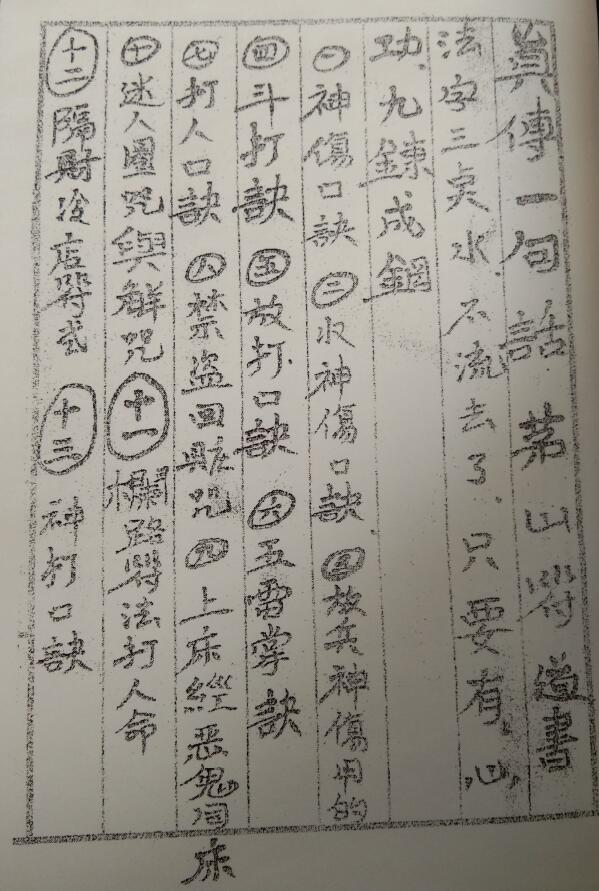 真傳一句話茅山符道書
法字三点水.不流去了.只要有心
功.九鍊成鋼
㊀神傷口訣㊁收神傷口訣㊂放兵神傷用的
㊃斗打訣㊄放打口訣㊅五雷掌訣
㊆打人口訣㊇禁盗回賍咒㊈上床經惡鬼同床
㊉迷人圍咒與解咒(十一)欄路符法打人命
(十二)隔財冷店符式(十三)神打口訣